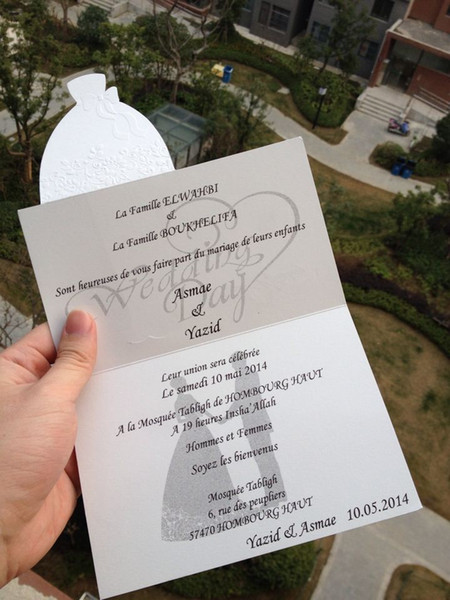 La Famille ELWAHBI
&
La Famille BOUKHELIFA
Sont heureuses de vous faire part du mariage de leurs enfants
Wedding
Day
Asmae
&
Yazid
Leur union sera célébrée
Le samedi 10 mai 2014
A la Mosquée Tabligh de HOMBOURG HAUT
A 19 heures Insha'Allah
Hommes et Femmes
Soyez les bienvenus
Mosquée Tabligh
6, rue des peupliers
57470 HOMBOURG HAUT
Yazid & Asmae 10.05.2014